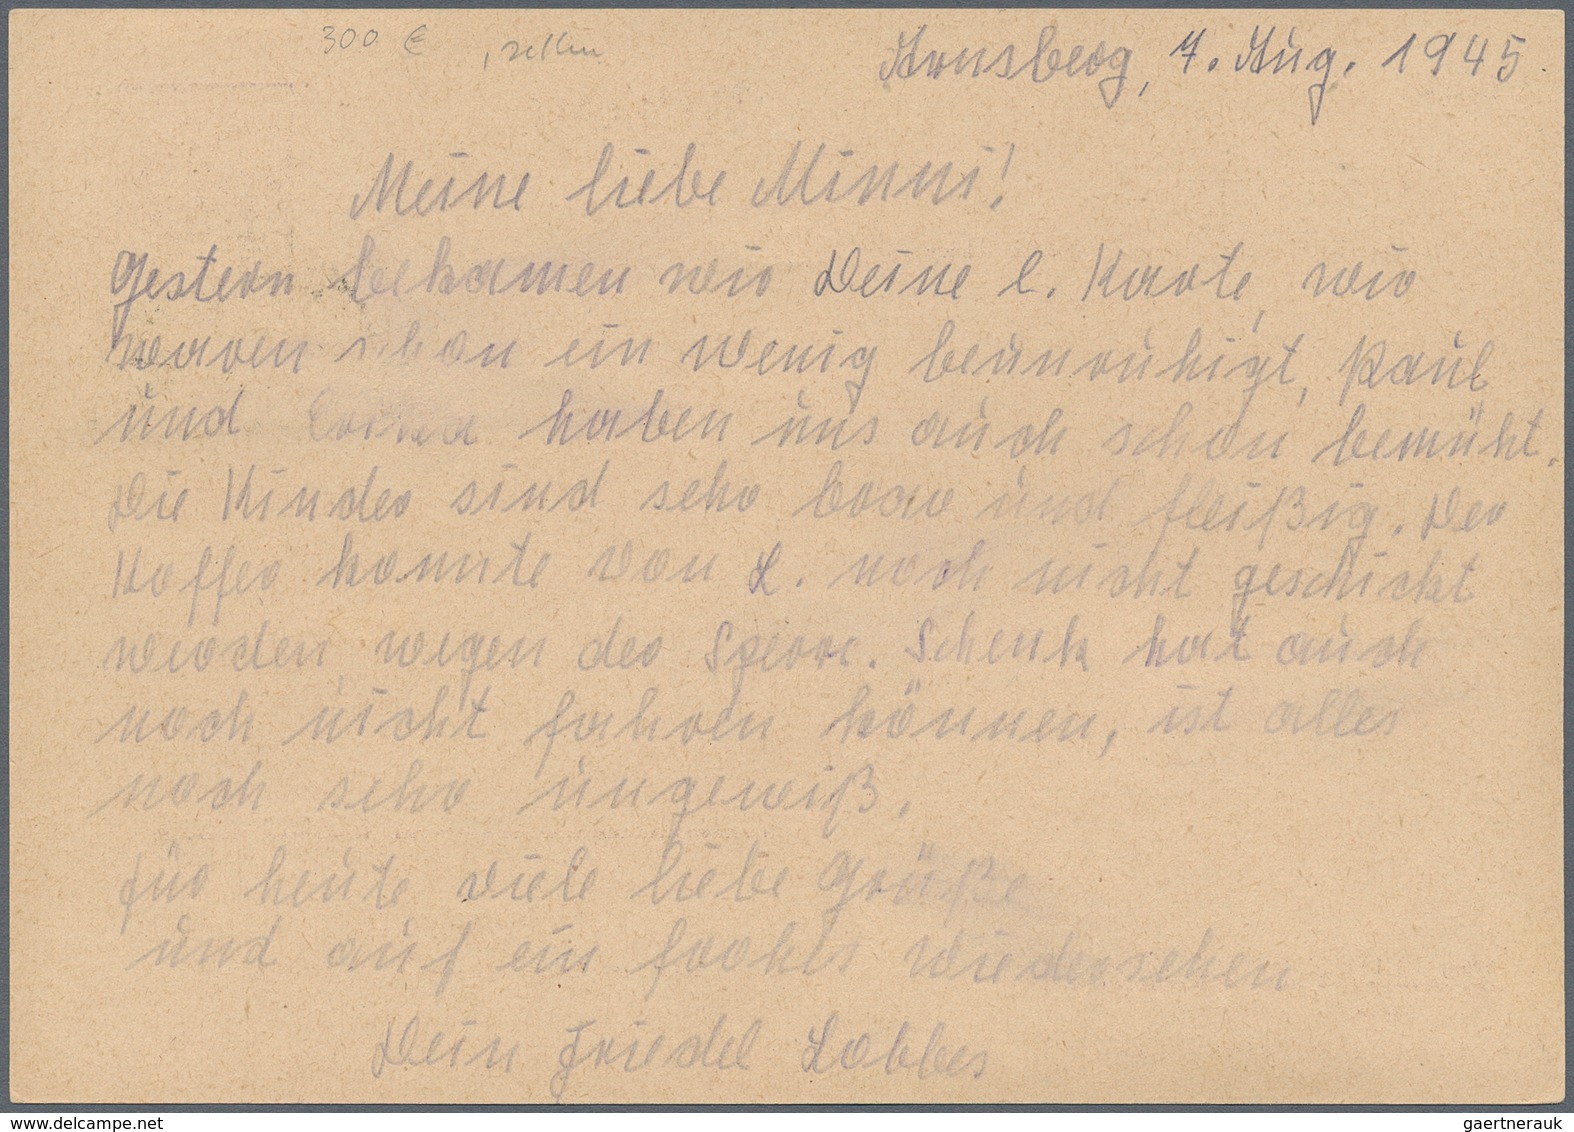 300 € , selten
Arnsberg, 7. Aug. 1945.
Meine liebe Minni!
Gestern bekamen wir Deine l. Karte, wir
waren schon ein wenig beunruhigt, Paul
und haben uns auch schon bemüht.
Die Kinder sind sehr brav und fleißig. Der
Koffer konnte von L. noch nicht geschickt
werden, wegen der Sperre. Schenk hat auch
noch nicht fahren können, ist alles
noch sehr ungewiß.
für heute viele liebe Grüße
und auf ein frohes Wiedersehen
Dein Friedel Lobbes
delcampe.net
gaertnerauk